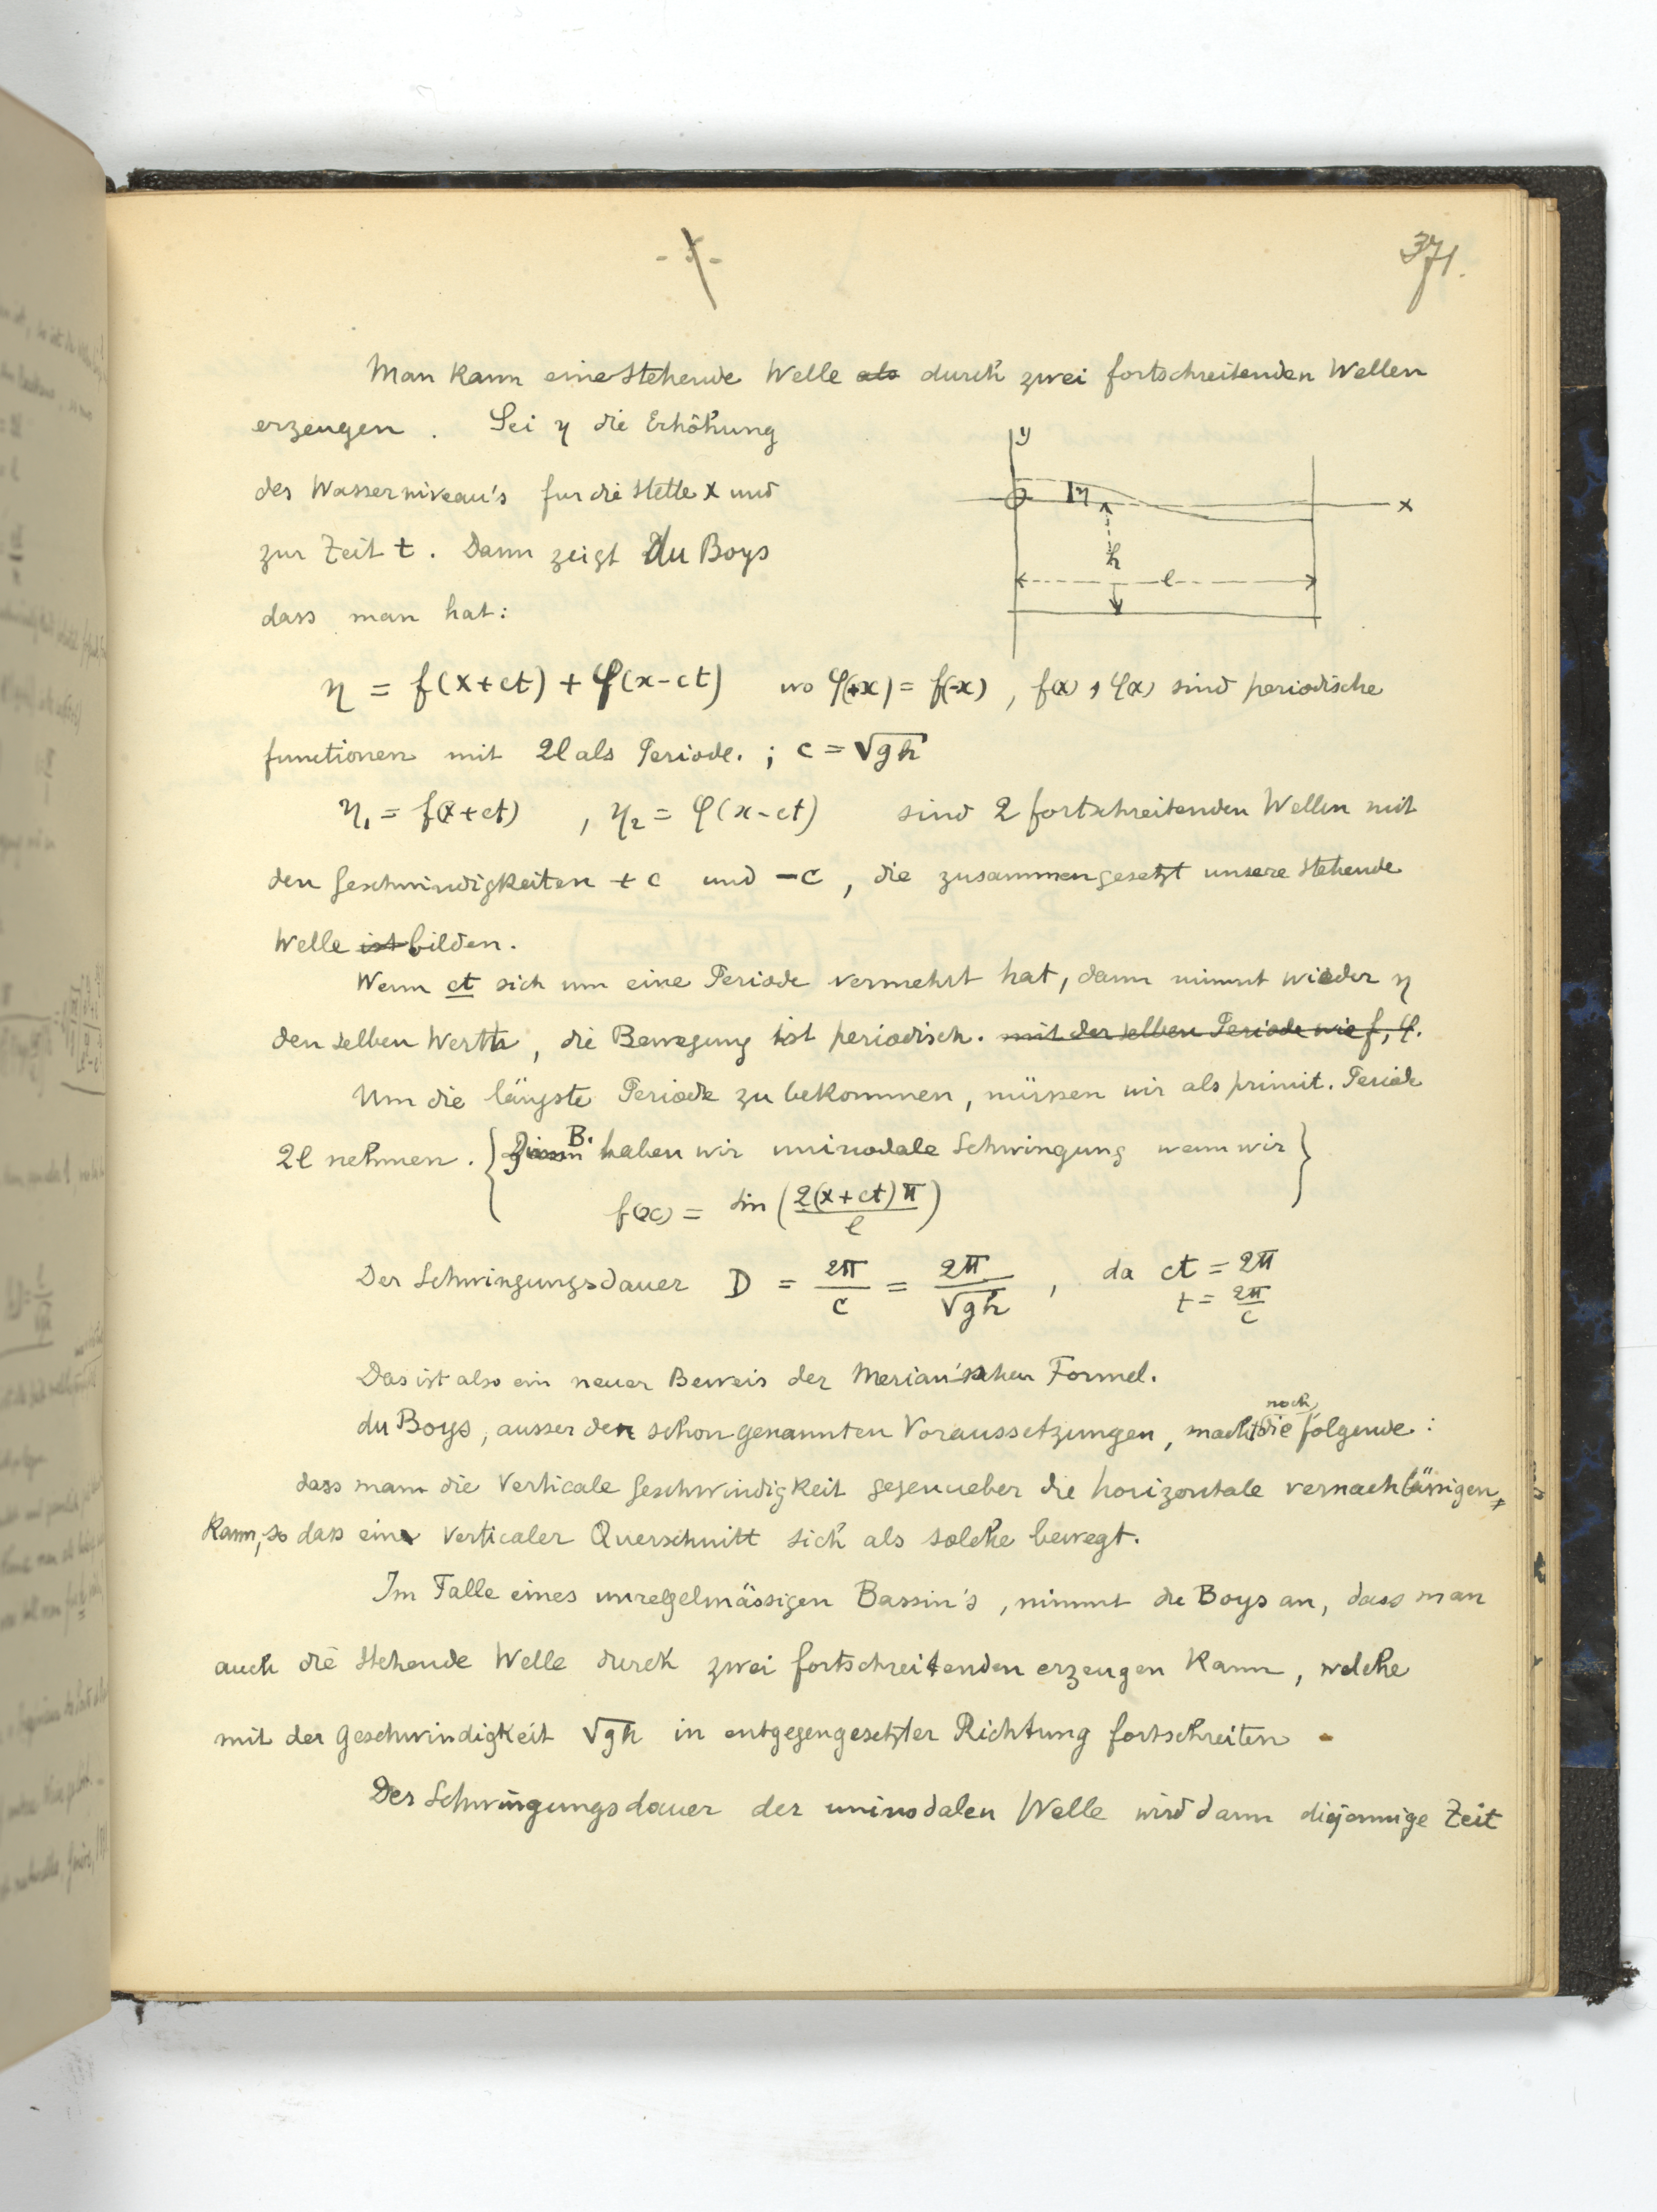 371.
Man kann eine stehende Welle als durch zwei fortschreitenden Wellen
erzeugen. Sei η die Erhöhung
des Wasserniveau's fur die Stelle x und
zur Zeit t. Dann zeigt du Boys
dass man hat:
y
η
x
h
l
η = f(x+ct) + φ(x-ct) wo φ(+x) = f(-x), f(x), φ(x) sind periodische
functionen mit 2l als Periode. ; c = √gh
η₁ = f(x+ct) , η₂ = φ(x-ct) sind 2 fortschreitenden Wellen mit
den Geschwindigkeiten +c und -c, die zusammengesetzt unsere stehende
Welle ist bilden.
Wenn ct sich um eine Periode vermehrt hat, dann nimmt wieder η
den selben Werth, die Bewegung ist periodisch. mit der selben Periode wie f, φ.
Um die längste Periode zu bekommen, müssen wir als primit. Periode
2l nehmen. { B. haben wir uninodale Schwingung wenn wir }
f(x) = sin (2(x+ct)π / l)
Der Schwingungsdauer D = 2π/c = 2π/√gh , da ct = 2π
t = 2π/c
Das ist also ein neuer Beweis der Merian'schen Formel.
du Boys, ausser den schon genannten Voraussetzungen, macht noch die folgende:
dass man die verticale Geschwindigkeit gegenueber die horizontale vernachlässigen
kann, so dass ein verticaler Querschnitt sich als solche bewegt.
Im Falle eines unregelmässigen Bassin's, nimmt du Boys an, dass man
auch die stehende Welle durch zwei fortschreitenden erzeugen kann, welche
mit der Geschwindigkeit √gh in entgegengesetzter Richtung fortschreiten
Der Schwingungsdauer der uninodalen Welle wird dann diejennige Zeit